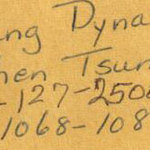 ng Dyna
hen Tsun
-127-250
1068-108